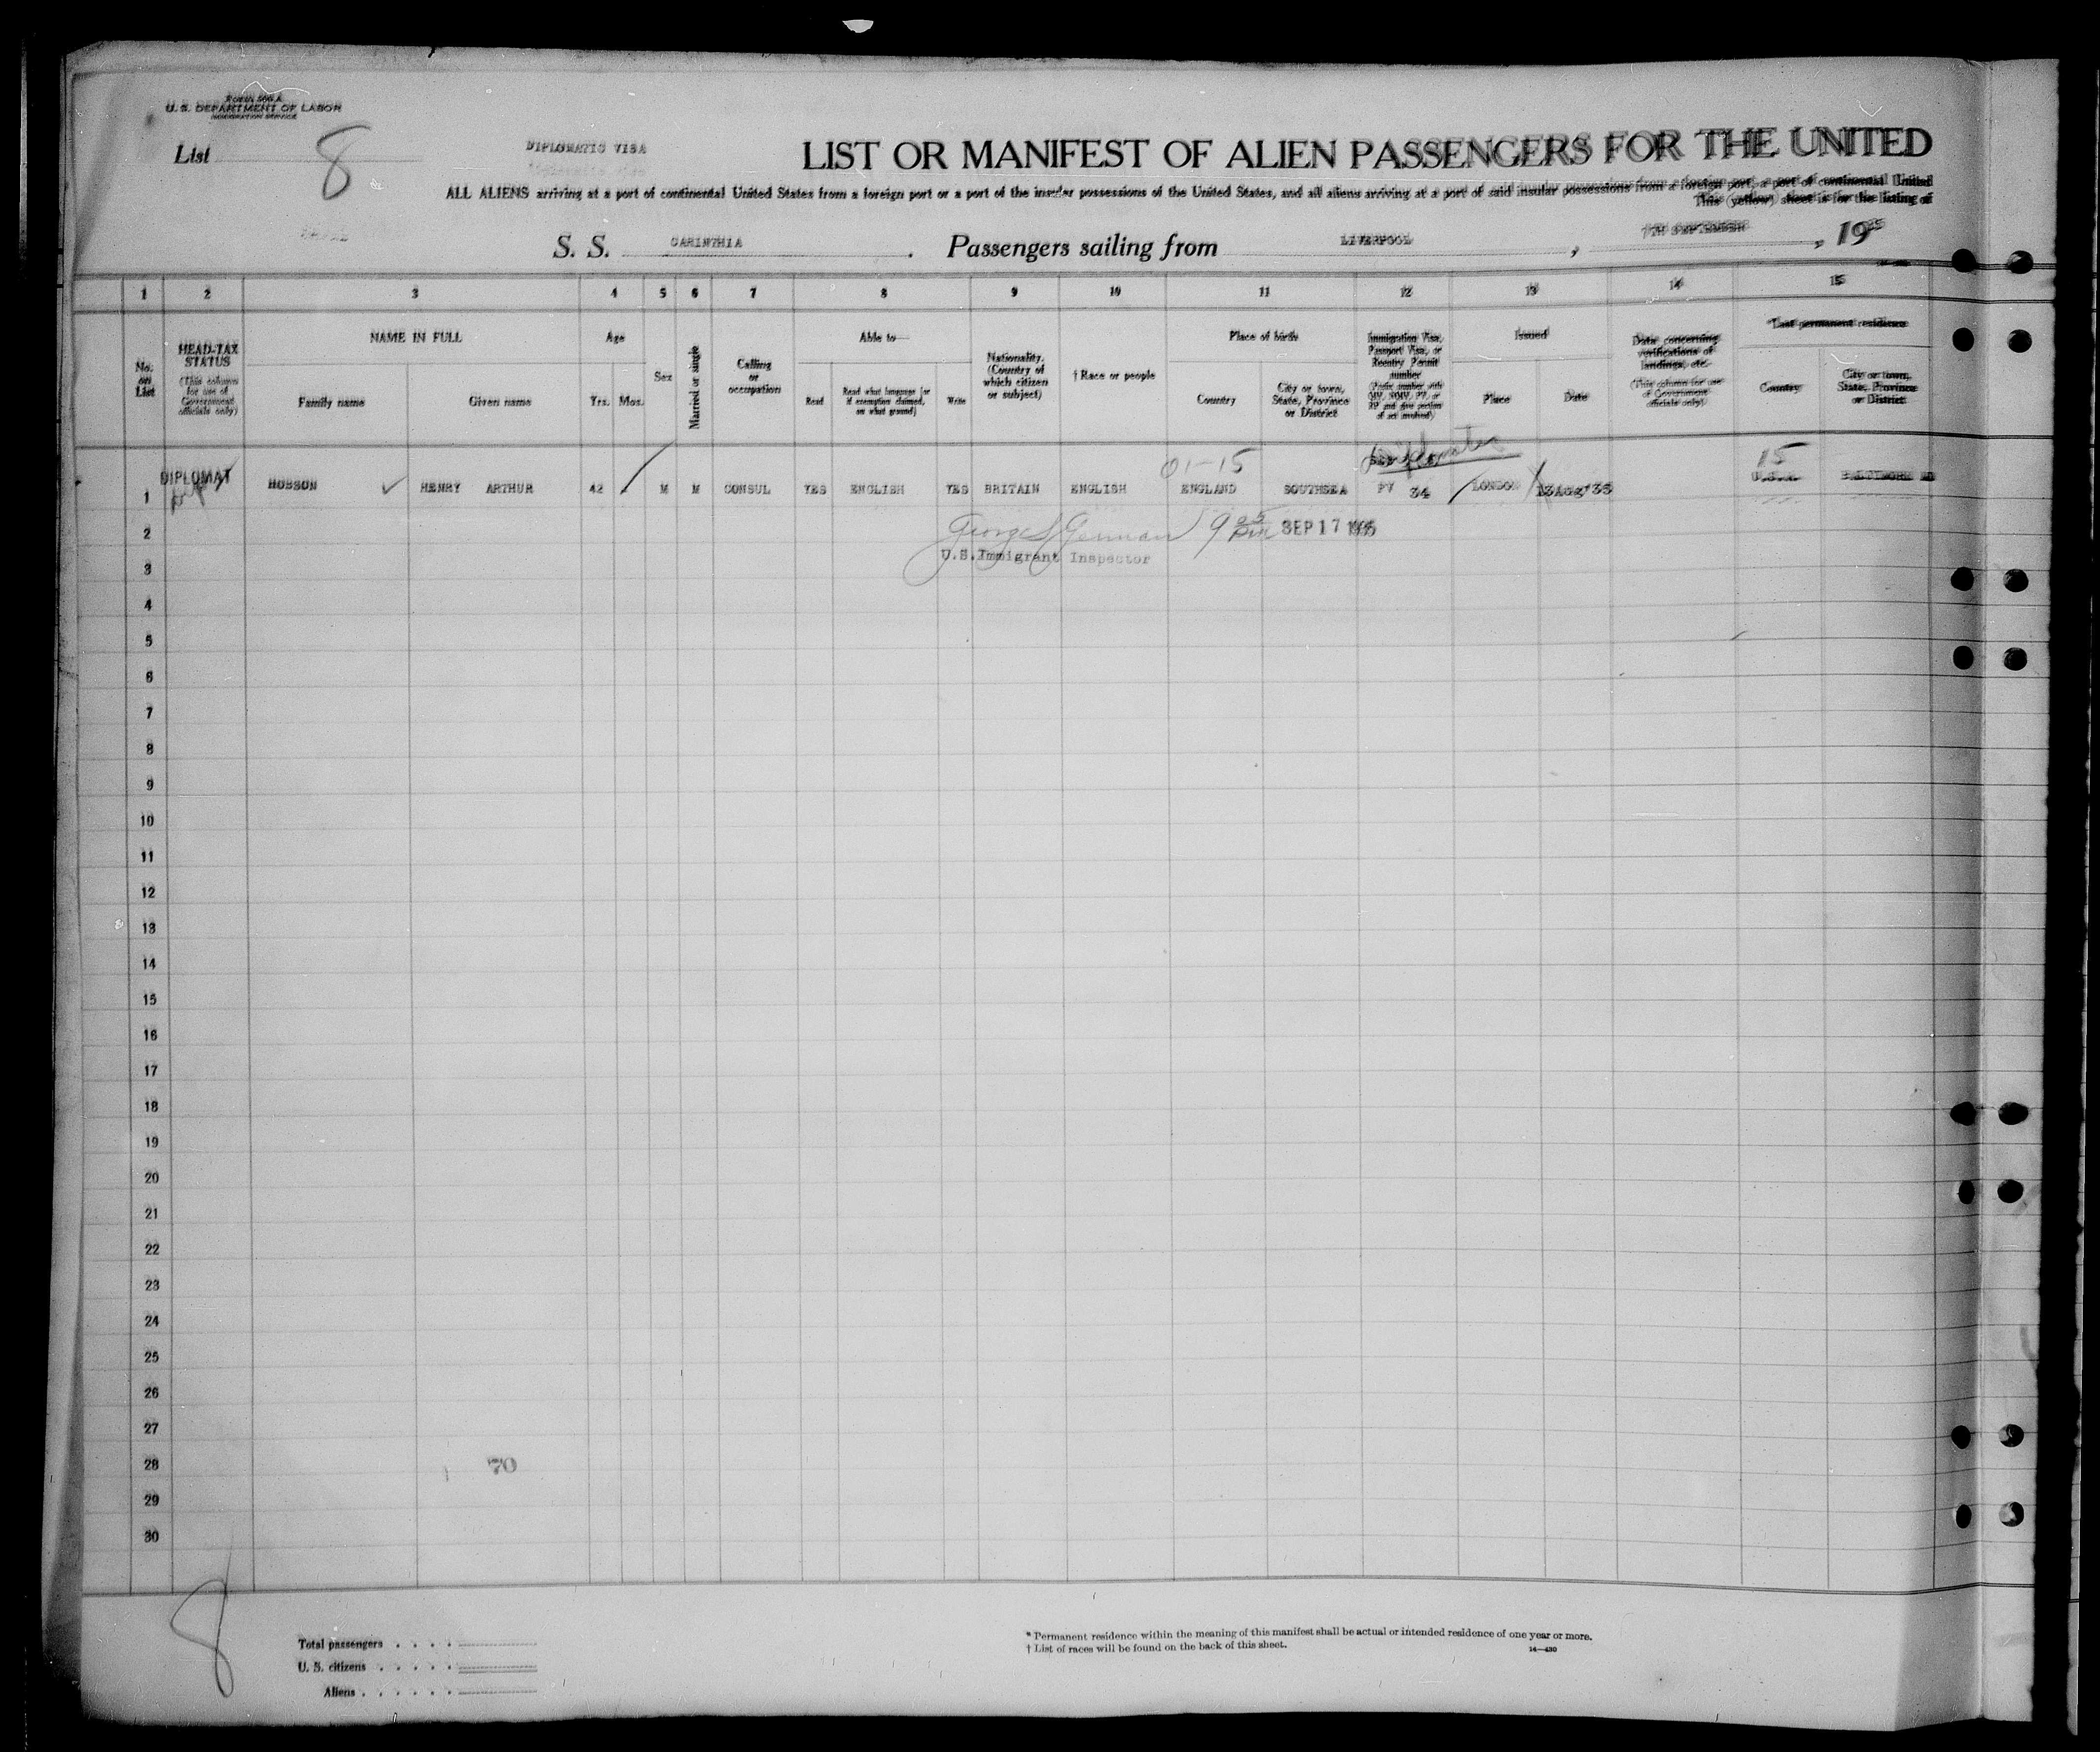 Form 500 A
U. S. DEPARTMENT OF LABOR
IMMIGRATION SERVICE
List 8
DIPLOMATIC VISA
LIST OR MANIFEST OF ALIEN PASSENGERS FOR THE UNITED
ALL ALIENS arriving at a port of continental United States from a foreign port or a port of the insular possessions of the United States, and all aliens arriving at a port of said insular possessions from a foreign port, a port of continental United
This (yellow) sheet is for the listing of
S. S. CARINTHIA . Passengers sailing from LIVERPOOL , 7TH SEPTEMBER , 1935
1 2 3 4 5 6 7 8 9 10 11 12 13 14 15
No. on List
HEAD-TAX STATUS
(This column for use of Government officials only)
NAME IN FULL
Family name
Given name
Age
Yrs.
Mos.
Sex
Married or single
Calling or occupation
Able to—
Read
Read what language [or if exemption claimed, on what ground]
Write
Nationality. (Country of which citizen or subject)
† Race or people
Place of birth
Country
City or town, State, Province or District
Immigration Visa, Passport Visa, or Reentry Permit number
(Prefix number with QIV, NQIV, PV, or RP and give section of act involved)
Issued
Place
Date
Data concerning verifications of landings, etc.
(This column for use of Government officials only)
*Last permanent residence
Country
City or town, State, Province or District
01-15
Diplomatic
15
1 DIPLOMAT HOBSON HENRY ARTHUR 42 M M CONSUL YES ENGLISH YES BRITAIN ENGLISH ENGLAND SOUTHSEA PV 34 LONDON 13AUG'35 U.S.A. BALTIMORE MD
2 George German 9 25 PM SEP 17 1935
U.S. Immigrant Inspector
3
4
5
6
7
8
9
10
11
12
13
14
15
16
17
18
19
20
21
22
23
24
25
26
27
28 70
29
30
8
Total passengers . . . .
U. S. citizens . . . . .
Aliens . . . . . .
* Permanent residence within the meaning of this manifest shall be actual or intended residence of one year or more.
† List of races will be found on the back of this sheet.
14—430